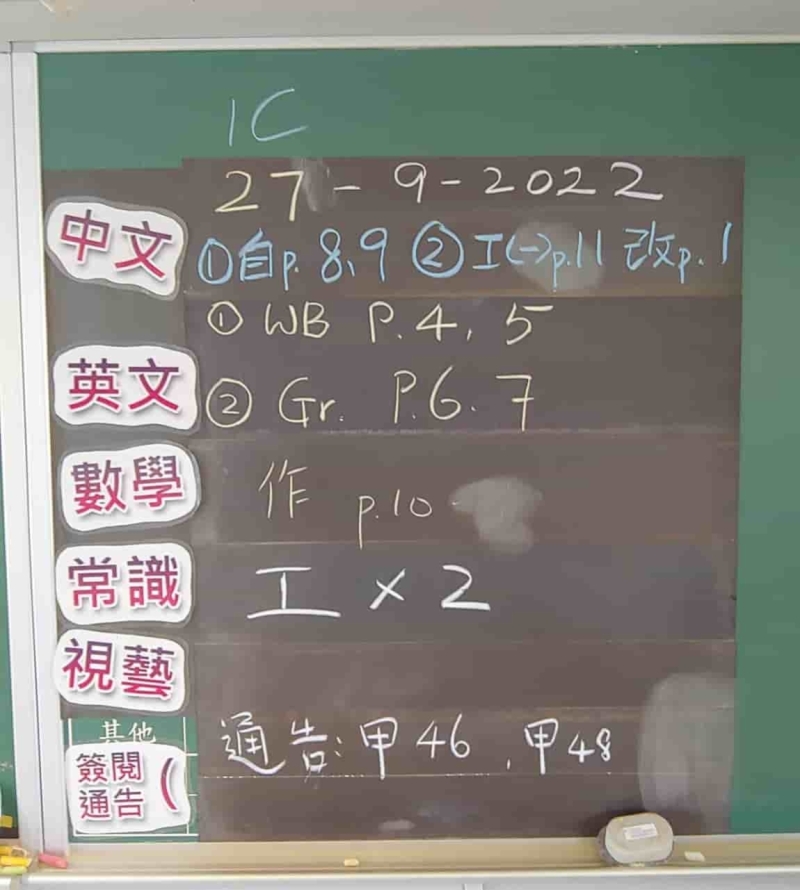 1C
27-9-2022
中文 ①自p. 8、9 ②工(一)p.11 改p. 1
① WB P.4, 5
英文 ② Gr. P.6. 7
數學 作 p.10
常識 工 × 2
視藝
其他
簽閱通告( 通告:甲46,甲48